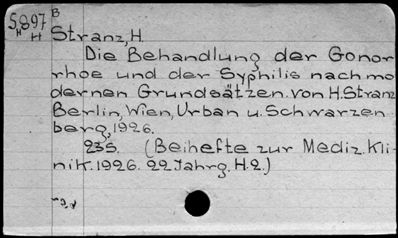 B
5,897
H H
Stranz, H.
Die Behandlung der Gonor
rhoe und der Syphilis nach mo
dernen Grundsätzen. von H. Stranz
Berlin, Wien, Urban u. Schwarzen
berg, 1926.
23 S. (Beihefte zur Mediz. Kli-
nik. 1926. 22 Jahrg. H. 2.)